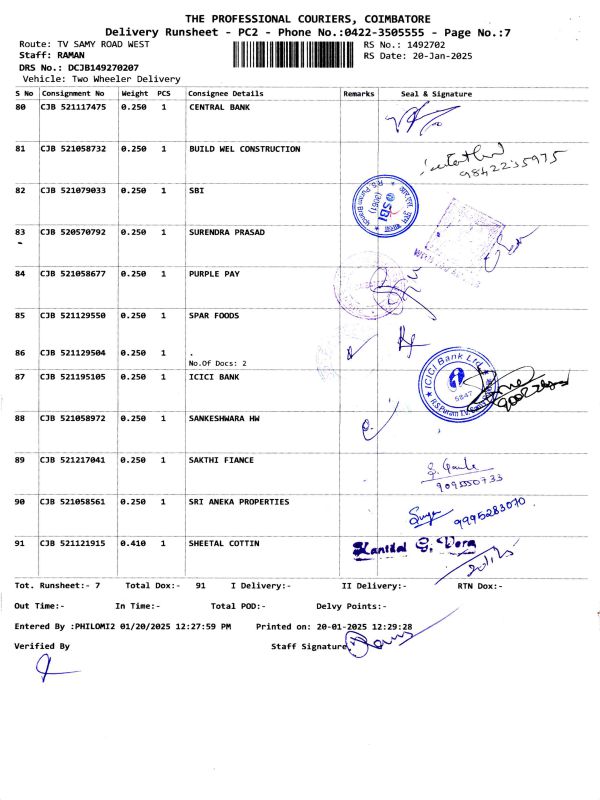 THE PROFESSIONAL COURIERS, COIMBATORE
Delivery Runsheet - PC2 - Phone No.:0422-3505555 - Page No.:7
Route: TV SAMY ROAD WEST RS No.: 1492702
Staff: RAMAN RS Date: 20-Jan-2025
DRS No.: DCJB149270207
Vehicle: Two Wheeler Delivery
S No Consignment No Weight PCS Consignee Details Remarks Seal & Signature
80 CJB 521117475 0.250 1 CENTRAL BANK
81 CJB 521058732 0.250 1 BUILD WEL CONSTRUCTION
9842235975
82 CJB 521079033 0.250 1 SBI
SBI
83 CJB 520570792 0.250 1 SURENDRA PRASAD
84 CJB 521058677 0.250 1 PURPLE PAY
85 CJB 521129550 0.250 1 SPAR FOODS
86 CJB 521129504 0.250 1 .
No.Of Docs: 2
87 CJB 521195105 0.250 1 ICICI BANK
ICICI Bank Ltd.
5847
88 CJB 521058972 0.250 1 SANKESHWARA HW
89 CJB 521217041 0.250 1 SAKTHI FIANCE
90 CJB 521058561 0.250 1 SRI ANEKA PROPERTIES
9995283070
91 CJB 521121915 0.410 1 SHEETAL COTTIN
Tot. Runsheet:- 7 Total Dox:- 91 I Delivery:- II Delivery:- RTN Dox:-
Out Time:- In Time:- Total POD:- Delvy Points:-
Entered By :PHILOMI2 01/20/2025 12:27:59 PM Printed on: 20-01-2025 12:29:28
Verified By Staff Signature